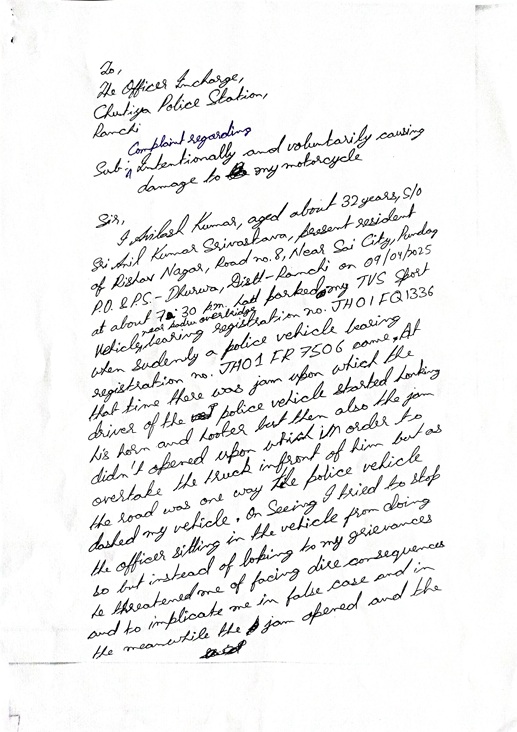 To,
The Officer Incharge,
Chutiya Police Station,
Ranchi
Complaint regarding
Sub: Intentionally and voluntarily causing
damage to my motorcycle
Sir,
I Avilash Kumar, aged about 32 years, S/o
Sri Anil Kumar Srivastava, present resident
of Rishav Nagar, Road no. 8, Near Sai City, Pundag
P.O. & P.S. - Dhurwa, Distt - Ranchi on 09/04/2025
at about 7:30 p.m. had parked my TVS Sport
near overbridge
Vehicle, bearing registration no. JH01FQ1336
when sudenly a police vehicle bearing
registration no. JH01 FR 7506 came. At
that time there was jam upon which the
driver of the police vehicle started honking
his horn and hooter but then also the jam
didn't opened upon which in order to
overtake the truck infront of him but as
the road was one way the police vehicle
dashed my vehicle. On Seeing I tried to stop
the officer sitting in the vehicle from doing
so but instead of looking to my grievances
he threatened me of facing dire consequences
and to implicate me in false case and in
the meanwhile the jam opened and the